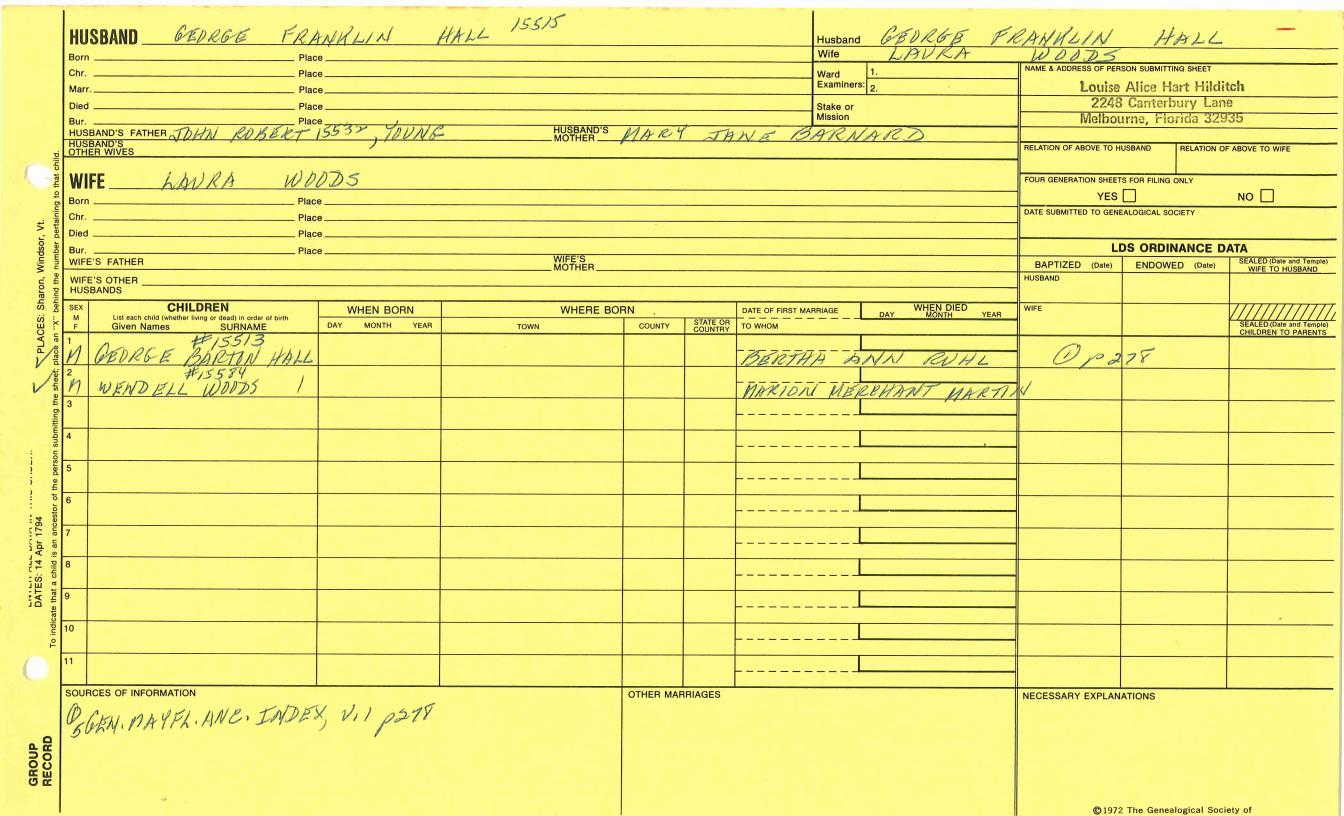 HUSBAND GEORGE FRANKLIN HALL 15515
Born Place
Chr. Place
Marr. Place
Died Place
Bur. Place
HUSBAND'S FATHER JOHN ROBERT 15532, YOUNG HUSBAND'S MOTHER MARY JANE BARNARD
HUSBAND'S OTHER WIVES
WIFE LAURA WOODS
Born Place
Chr. Place
Died Place
Bur. Place
WIFE'S FATHER WIFE'S MOTHER
WIFE'S OTHER HUSBANDS
Husband GEORGE FRANKLIN HALL
Wife LAURA WOODS
Ward Examiners: 1.
2.
Stake or Mission
NAME & ADDRESS OF PERSON SUBMITTING SHEET
Louise Alice Hart Hilditch
2248 Canterbury Lane
Melbourne, Florida 32935
RELATION OF ABOVE TO HUSBAND RELATION OF ABOVE TO WIFE
FOUR GENERATION SHEETS FOR FILING ONLY
YES NO
DATE SUBMITTED TO GENEALOGICAL SOCIETY
LDS ORDINANCE DATA
BAPTIZED (Date) ENDOWED (Date) SEALED (Date and Temple) WIFE TO HUSBAND
HUSBAND
WIFE
SEALED (Date and Temple) CHILDREN TO PARENTS
SEX M F
CHILDREN
List each child (whether living or dead) in order of birth
Given Names SURNAME
WHEN BORN
DAY MONTH YEAR
WHERE BORN
TOWN COUNTY STATE OR COUNTRY
DATE OF FIRST MARRIAGE
TO WHOM
WHEN DIED
DAY MONTH YEAR
1 #15513
M GEORGE BARTON HALL BERTHA ANN RUHL ① p278
2 #15584
M WENDELL WOODS 1 MARION MERCHANT MARTIN
3
4
5
6
7
8
9
10
11
SOURCES OF INFORMATION
① 5 GEN. MAYFL. ANC. INDEX, V.1 p278
OTHER MARRIAGES
NECESSARY EXPLANATIONS
©1972 The Genealogical Society of
GROUP RECORD
DATES: 14 Apr 1794
PLACES: Sharon, Windsor, Vt.
To indicate that a child is an ancestor of the person submitting the sheet, place an "X" behind the number pertaining to that child.